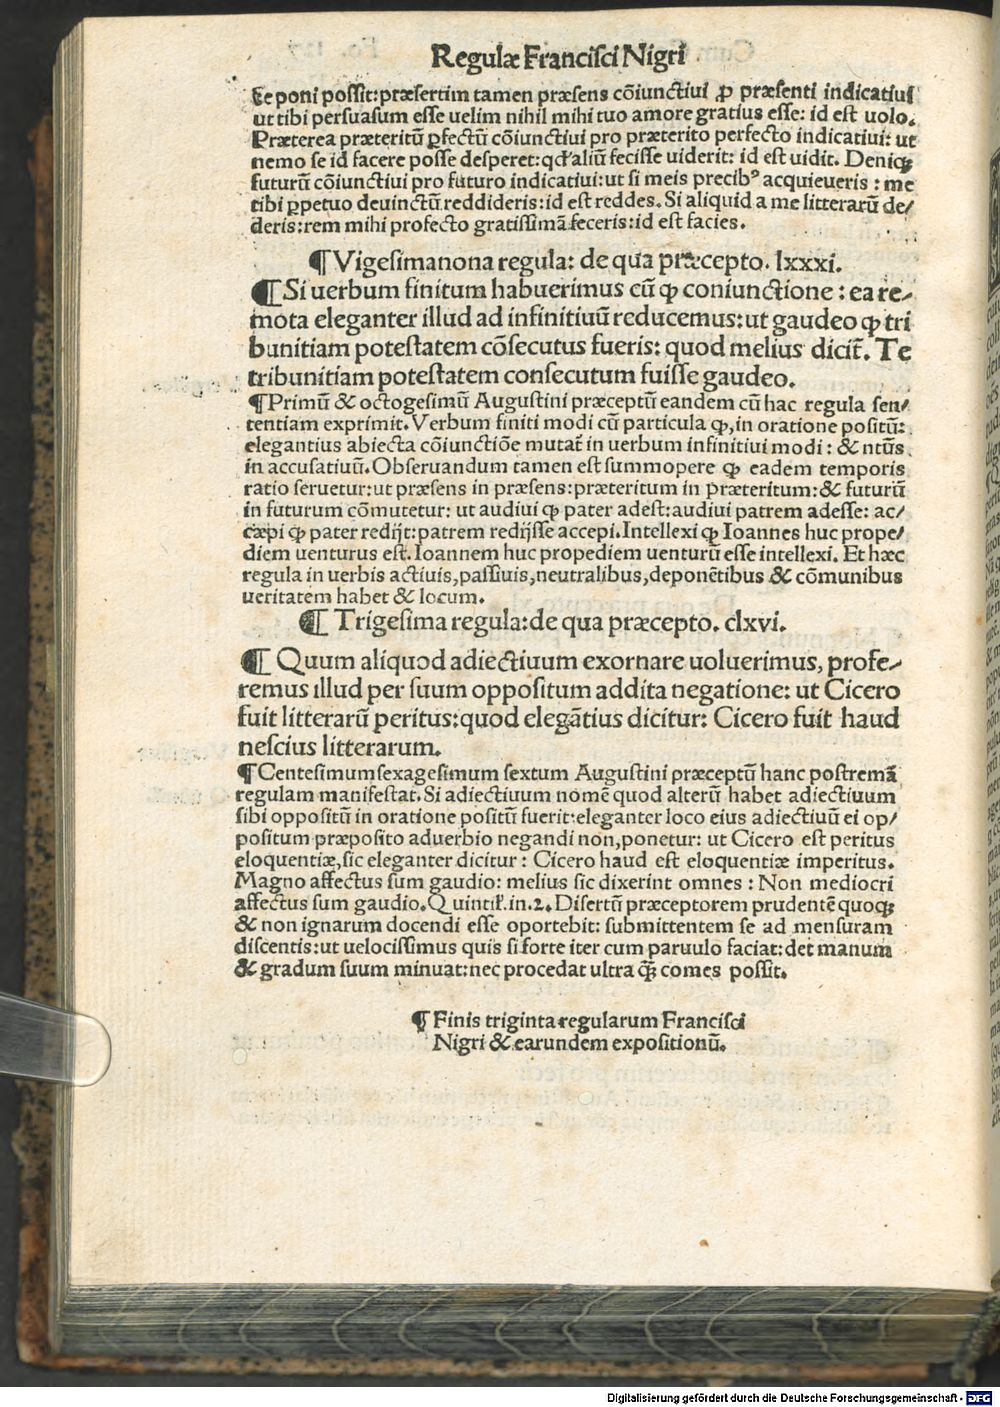 Regulæ Franciſci Nigri
te poni poſſit:præſertim tamen præſens cõiunctiui ꝓ præſenti indicatiui
ut tibi perſuaſum eſſe uelim nihil mihi tuo amore gratius eſſe: id eſt uolo.
Præterea præteritũ ꝑfectũ cõiunctiui pro præterito perfecto indicatiui: ut
nemo ſe id facere poſſe deſperet:qđ aliũ feciſſe uiderit: id eſt uidit. Deniqꝫ
futurũ cõiunctiui pro futuro indicatiui:ut ſi meis precibꝰ acquieueris : me
tibi ꝑpetuo deuinctũ reddideris:id eſt reddes. Si aliquid a me litterarũ de/
deris:rem mihi profecto gratiſſimã feceris:id eſt facies.
¶ Vigeſimanona regula: de qua præcepto. lxxxi.
¶ Si uerbum finitum habuerimus cũ ꝙ coniunctione : ea re/
mota eleganter illud ad infinitiuũ reducemus:ut gaudeo ꝙ tri
bunitiam poteſtatem cõſecutus fueris: quod melius dicit̃. Te
tribunitiam poteſtatem conſecutum fuiſſe gaudeo.
¶ Primũ & octogeſimũ Auguſtini præceptũ eandem cũ hac regula ſen/
tentiam exprimit. Verbum finiti modi cũ particula ꝙ, in oratione poſitũ:
elegantius abiecta cõiunctiõe mutat̃ in uerbum infinitiui modi : & ntũs
in accuſatiuũ. Obſeruandum tamen eſt ſummopere ꝙ eadem temporis
ratio ſeruetur:ut præſens in præſens:præteritum in præteritum:& futurũ
in futurum cõmutetur: ut audiui ꝙ pater adeſt:audiui patrem adeſſe: ac/
cæpi ꝙ pater redijt:patrem redijſſe accepi. Intellexi ꝙ Ioannes huc prope/
diem uenturus eſt. Ioannem huc propediem uenturũ eſſe intellexi. Et hæc
regula in uerbis actiuis, paſſiuis, neutralibus, deponẽtibus & cõmunibus
ueritatem habet & locum.
¶ Trigeſima regula:de qua præcepto. clxvi.
¶ Quum aliquod adiectiuum exornare uoluerimus, profe/
remus illud per ſuum oppoſitum addita negatione: ut Cicero
fuit litterarũ peritus:quod elegãtius dicitur: Cicero fuit haud
neſcius litterarum.
¶ Centeſimum ſexageſimum ſextum Auguſtini præceptũ hanc poſtremã
regulam manifeſtat. Si adiectiuum nomẽ quod alterũ habet adiectiuum
ſibi oppoſitũ in oratione poſitũ fuerit:eleganter loco eius adiectiuũ ei op/
poſitum præpoſito aduerbio negandi non, ponetur: ut Cicero eſt peritus
eloquentiæ, ſic eleganter dicitur : Cicero haud eſt eloquentiæ imperitus.
Magno affectus ſum gaudio: melius ſic dixerint omnes : Non mediocri
affectus ſum gaudio. Quintil̃. in. 2. Diſertũ præceptorem prudentẽ quoqꝫ
& non ignarum docendi eſſe oportebit: ſubmittentem ſe ad menſuram
diſcentis:ut uelociſſimus quis ſi forte iter cum paruulo faciat: det manum
& gradum ſuum minuat:nec procedat ultra q̃ꝫ comes poſſit.
¶ Finis triginta regularum Franciſci
Nigri & earundem expoſitionũ.
Digitalisierung gefördert durch die Deutsche Forschungsgemeinschaft - DFG